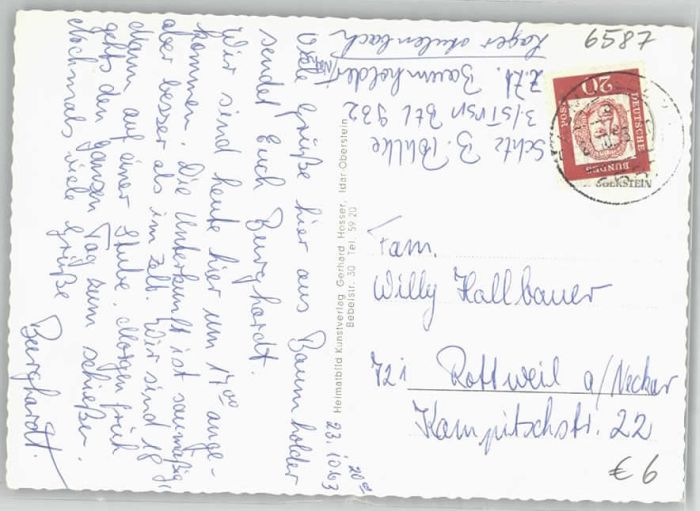 23. 10 63
20⁰⁰
Viele Grüße hier aus Baumholder
sendet Euch Burghardt.
Wir sind heute hier um 17⁰⁰ ange-
kommen. Die Unterkunft ist saumäßig
aber besser als im Zelt. Wir sind 18
Mann auf einer Stube. Morgen früh
gehts den ganzen Tag zum schießen.
Nochmals viele Grüße
Burghardt.
Heimatbild Kunstverlag Gerhard Hosser, Idar Oberstein
Bebelstr. 30 Tel. 59 20
6587
Schtz B. Pohlke
Btl 932
Z.Zt. Baumholder
Lager Aulenbach
DEUTSCHE
BUNDES
POST
20
Fam.
Willy Hallbauer
721 Rottweil a/Neckar
Kampitschstr. 22
€ 6